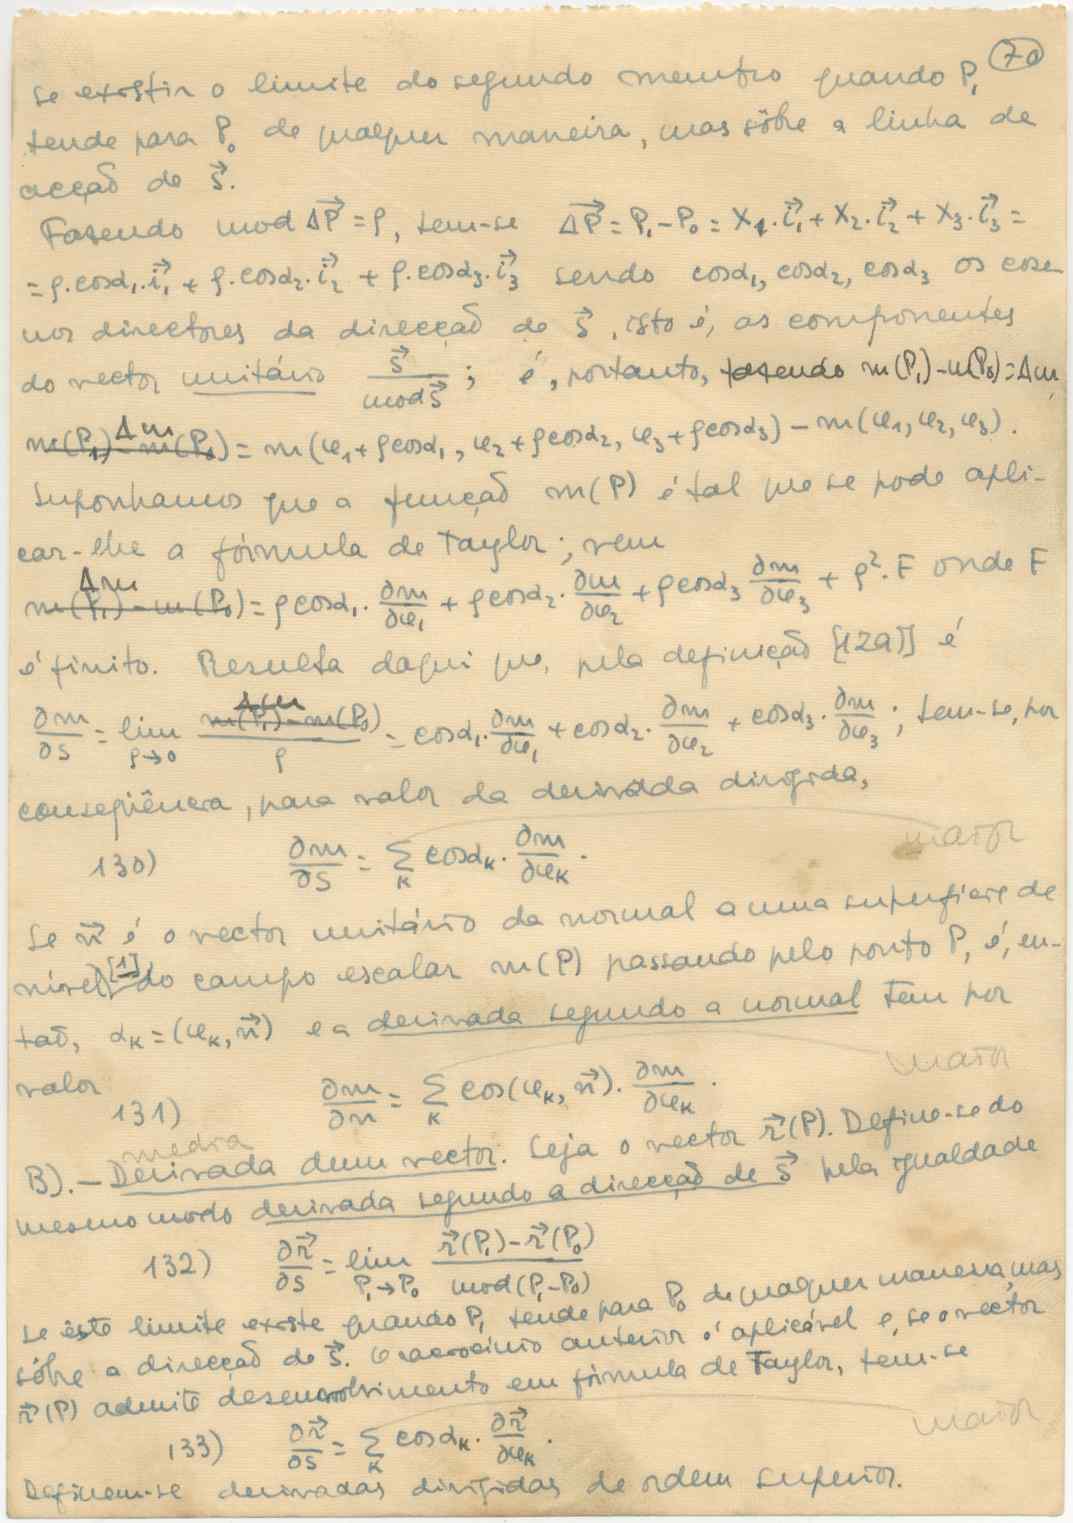 70
se existir o limite do segundo membro quando P₁
tende para P₀ de qualquer maneira, mas sôbre a linha de
acção de s⃗.
Fazendo mod ΔP⃗ = ρ, tem-se ΔP⃗ = P₁ - P₀ = x₁.i⃗₁ + x₂.i⃗₂ + x₃.i⃗₃ =
= ρ.cosα₁.i⃗₁ + ρ.cosα₂.i⃗₂ + ρ.cosα₃.i⃗₃ sendo cosα₁, cosα₂, cosα₃ os cose-
nos directores da direcção de s⃗, isto é, as componentes
do vector unitário s⃗/mod s⃗ ; é, portanto, fazendo m(P₁)-m(P₀)=Δm,
Δm
m(P₁) - m(P₀) = m(φ₁+ρcosα₁, φ₂+ρcosα₂, φ₃+ρcosα₃) - m(φ₁, φ₂, φ₃).
Suponhamos que a função m(P) é tal que se pode apli-
car-lhe a fórmula de Taylor; vem
Δm
m(P₁) - m(P₀) = ρcosα₁. ∂m/∂φ₁ + ρcosα₂. ∂m/∂φ₂ + ρcosα₃ ∂m/∂φ₃ + ρ².F onde F
é finito. Resulta daqui que, pela definição [129)] é
Δm
∂m/∂s = lim ρ→0 m(P₁)-m(P₀)/ρ = cosα₁. ∂m/∂φ₁ + cosα₂. ∂m/∂φ₂ + cosα₃. ∂m/∂φ₃ ; tem-se, por
conseqüência, para valor da derivada dirigida,
maior
130) ∂m/∂s = Σ_K cosα_K. ∂m/∂φ_K .
Se n⃗ é o vector unitário da normal a uma superfície de
nível [1] do campo escalar m(P) passando pelo ponto P, é, en-
tão, α_K = (φ_K, n⃗) e a derivada segundo a normal tem por
maior
valor
131) ∂m/∂n = Σ_K cos(φ_K, n⃗). ∂m/∂φ_K .
media
B).- Derivada dum vector. Seja o vector r⃗(P). Define-se do
mesmo modo derivada segundo a direcção de s⃗ pela igualdade
132) ∂r⃗/∂s = lim P₁→P₀ r⃗(P₁)-r⃗(P₀)/mod(P₁-P₀)
se êste limite existe quando P₁ tende para P₀ de qualquer maneira, mas
sôbre a direcção de s⃗. O raciocínio anterior é aplicável e, se o vector
r⃗(P) admite desenvolvimento em fórmula de Taylor, tem-se
maior
133) ∂r⃗/∂s = Σ_K cosα_K. ∂r⃗/∂φ_K .
Definem-se derivadas dirigidas de ordem superior.